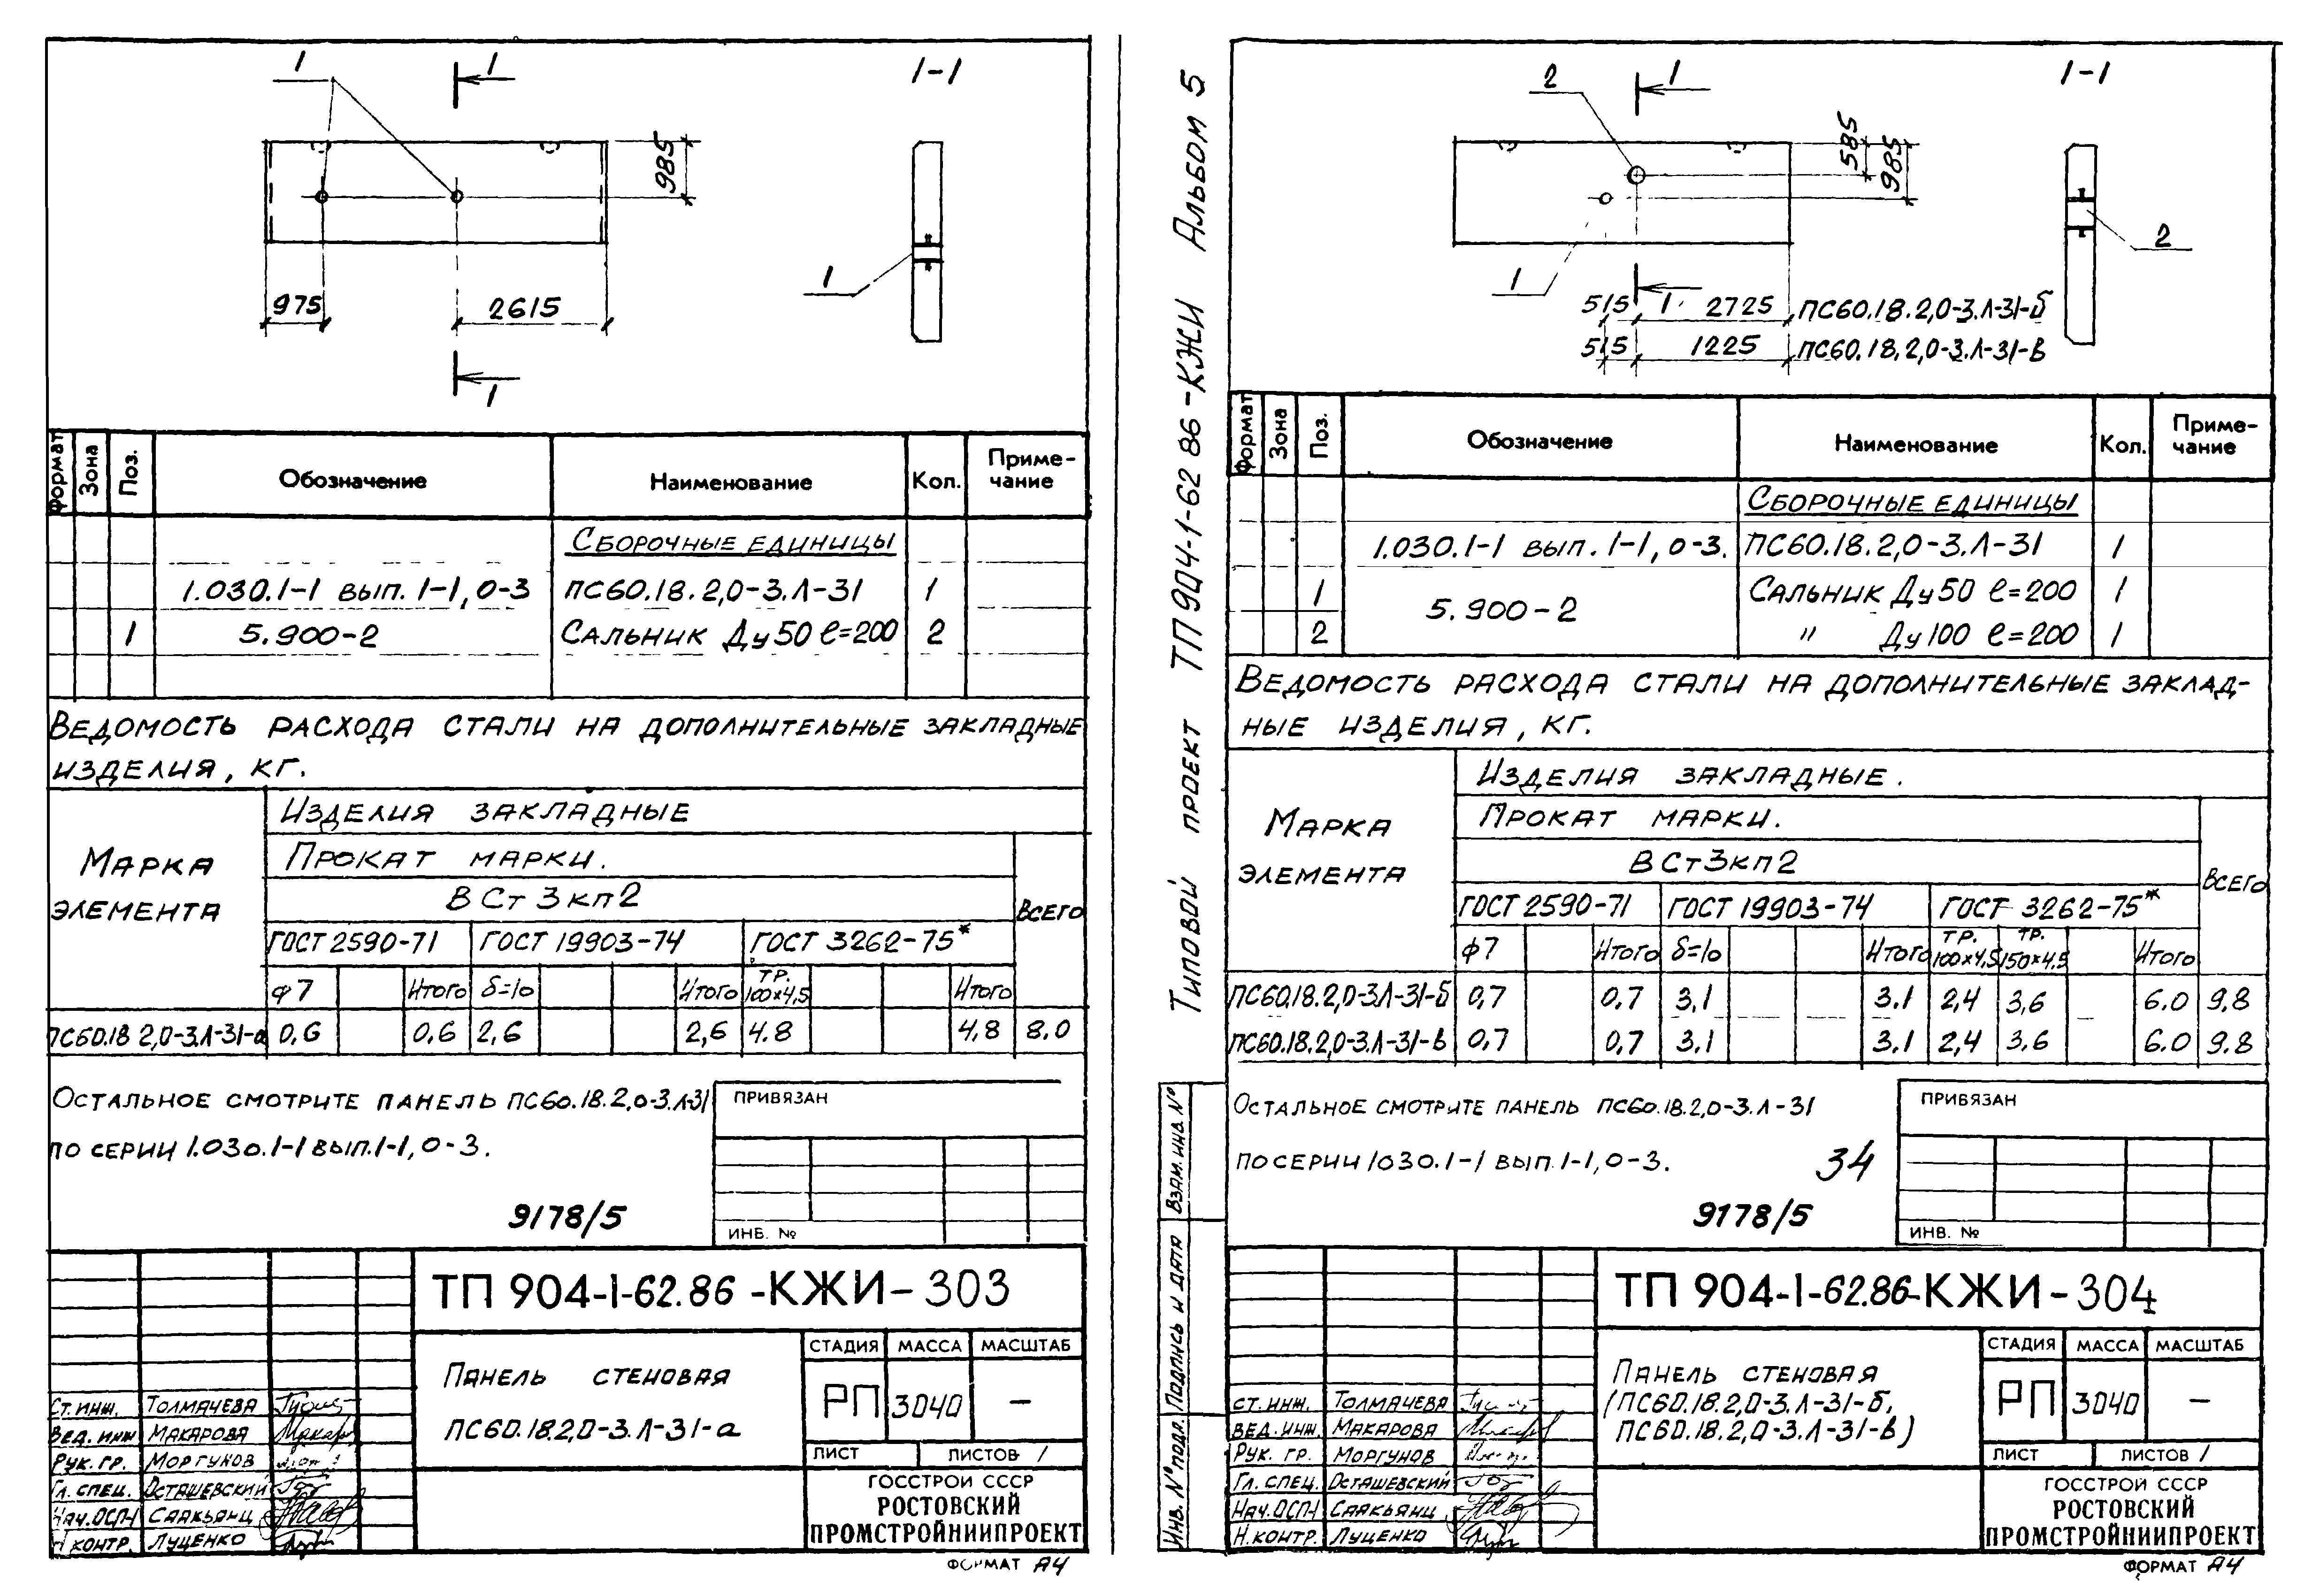 1
1
1-1
985
1
975
2615
1
Формат
Зона
Поз.
Обозначение
Наименование
Кол.
Приме-
чание
Сборочные единицы
1.030.1-1 вып. 1-1, 0-3 ПС60.18.2,0-3.Л-31 1
1 5.900-2 Сальник Ду50 ℓ=200 2
Ведомость расхода стали на дополнительные закладные
изделия, кг.
Марка
элемента
Изделия закладные
Прокат марки.
ВСт3кп2
Всего
ГОСТ 2590-71 ГОСТ 19903-74 ГОСТ 3262-75*
ф7 Итого δ=10 Итого Тр. 100х4,5 Итого
ПС60.18 2,0-3.Л-31-а 0,6 0,6 2,6 2,6 4.8 4,8 8.0
Остальное смотрите панель ПС60.18.2,0-3.Л-31
по серии 1.030.1-1 вып.1-1, 0-3.
9178/5
ПРИВЯЗАН
ИНВ. №
ТП 904-1-62.86-КЖИ-303
Панель стеновая
ПС60.18.2,0-3.Л-31-а
СТАДИЯ МАССА МАСШТАБ
РП 3040 —
ЛИСТ ЛИСТОВ 1
ГОССТРОЙ СССР
РОСТОВСКИЙ
ПРОМСТРОЙНИИПРОЕКТ
Ст. инж. Толмачева
Вед. инж Макарова
Рук. гр. Моргунов
Гл. спец. Осташевский
Нач. ОСП-1 Саакьянц
Н контр. Луценко
ФОРМАТ А4
Типовой проект ТП 904-1-62 86-КЖИ Альбом 5
Взам. инв. №
Подпись и дата
Инв. № подл.
2
1
1-1
585
985
1
2
515 1 2725 ПС60.18.2,0-3.Л-31-б
515 1225 ПС60.18.2,0-3.Л-31-в
Формат
Зона
Поз.
Обозначение
Наименование
Кол.
Приме-
чание
Сборочные единицы
1.030.1-1 вып. 1-1, 0-3. ПС60.18.2,0-3.Л-31 1
1 5.900-2 Сальник Ду50 ℓ=200 1
2 " Ду100 ℓ=200 1
Ведомость расхода стали на дополнительные заклад-
ные изделия, кг.
Марка
элемента
Изделия закладные.
Прокат марки.
ВСт3кп2
Всего
ГОСТ 2590-71 ГОСТ 19903-74 ГОСТ 3262-75*
ф7 Итого δ=10 Итого Тр. 100х4,5 Тр. 150х4.5 Итого
ПС60.18.2,0-3Л-31-б 0,7 0,7 3,1 3.1 2,4 3,6 6.0 9.8
ПС60.18.2,0-3.Л-31-в 0,7 0,7 3.1 3.1 2,4 3,6 6.0 9.8
Остальное смотрите панель ПС60.18.2,0-3.Л-31
по серии 1030.1-1 вып 1-1, 0-3.
34
9178/5
ПРИВЯЗАН
ИНВ. №
ТП 904-1-62.86-КЖИ-304
Панель стеновая
(ПС60.18.2,0-3.Л-31-б,
ПС60.18.2,0-3.Л-31-в)
СТАДИЯ МАССА МАСШТАБ
РП 3040 —
ЛИСТ ЛИСТОВ 1
ГОССТРОЙ СССР
РОСТОВСКИЙ
ПРОМСТРОЙНИИПРОЕКТ
Ст. инж. Толмачева
Вед. инж. Макарова
Рук. гр. Моргунов
Гл. спец. Осташевский
Нач. ОСП-1 Саакьянц
Н. контр. Луценко
ФОРМАТ А4